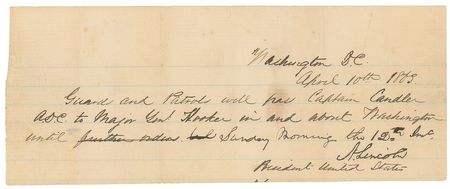 Washington D.C.
April 10th 1863
Guard and Patrols will pass Captain Candler
A.D.C. to Major Genl Hooker in and about Washington
until further orders Sunday Morning the 12th Inst.
A. Lincoln
President United States